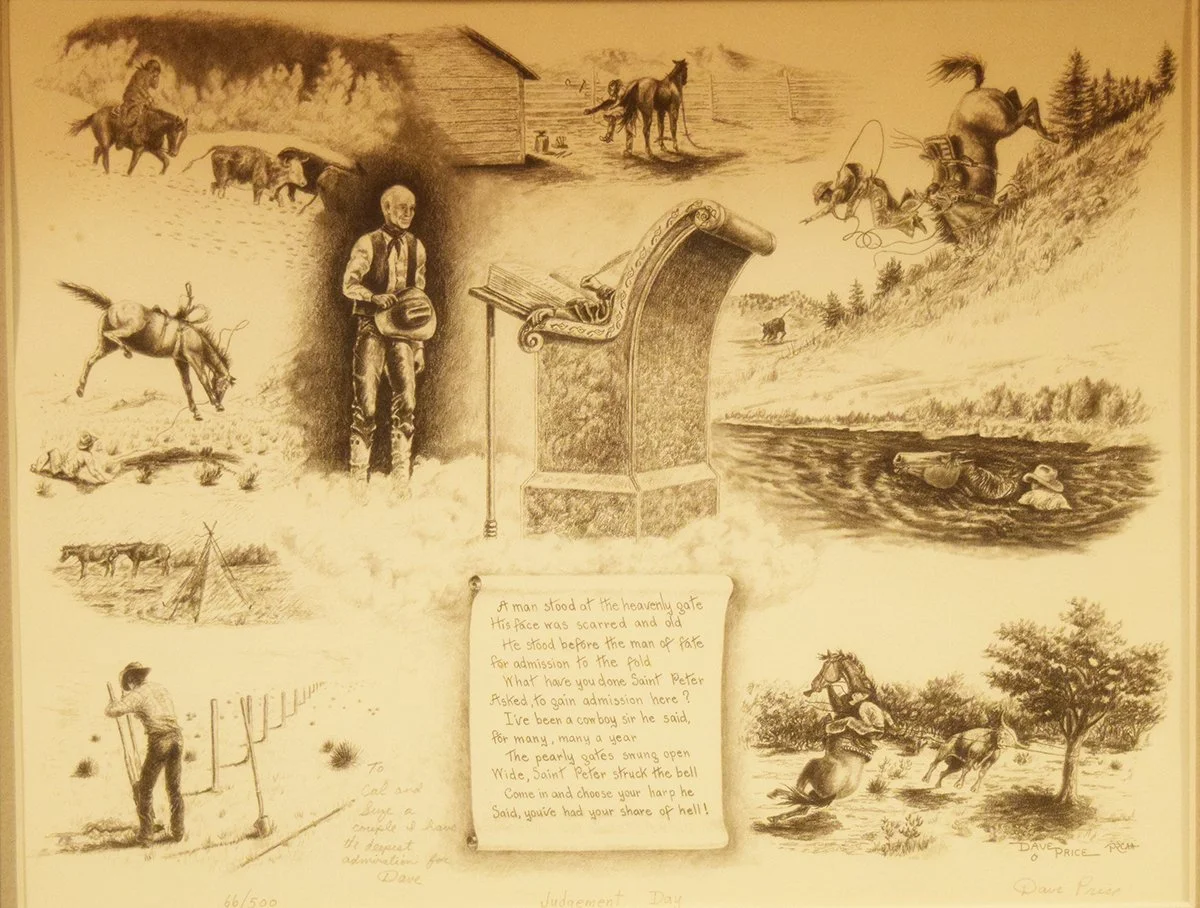 A man stood at the heavenly gate
His face was scarred and old
He stood before the man of fate
for admission to the fold
What have you done Saint Peter
Asked, to gain admission here?
I've been a cowboy sir he said,
for many, many a year
The pearly gates swung open
Wide, Saint Peter struck the bell
Come in and choose your harp he
Said, youve had your share of hell!
To
Cal and
Suze a
couple I have
the deepest
admiration for
Dave
DAVE PRICE
66/500
Judgement Day
Dave Price